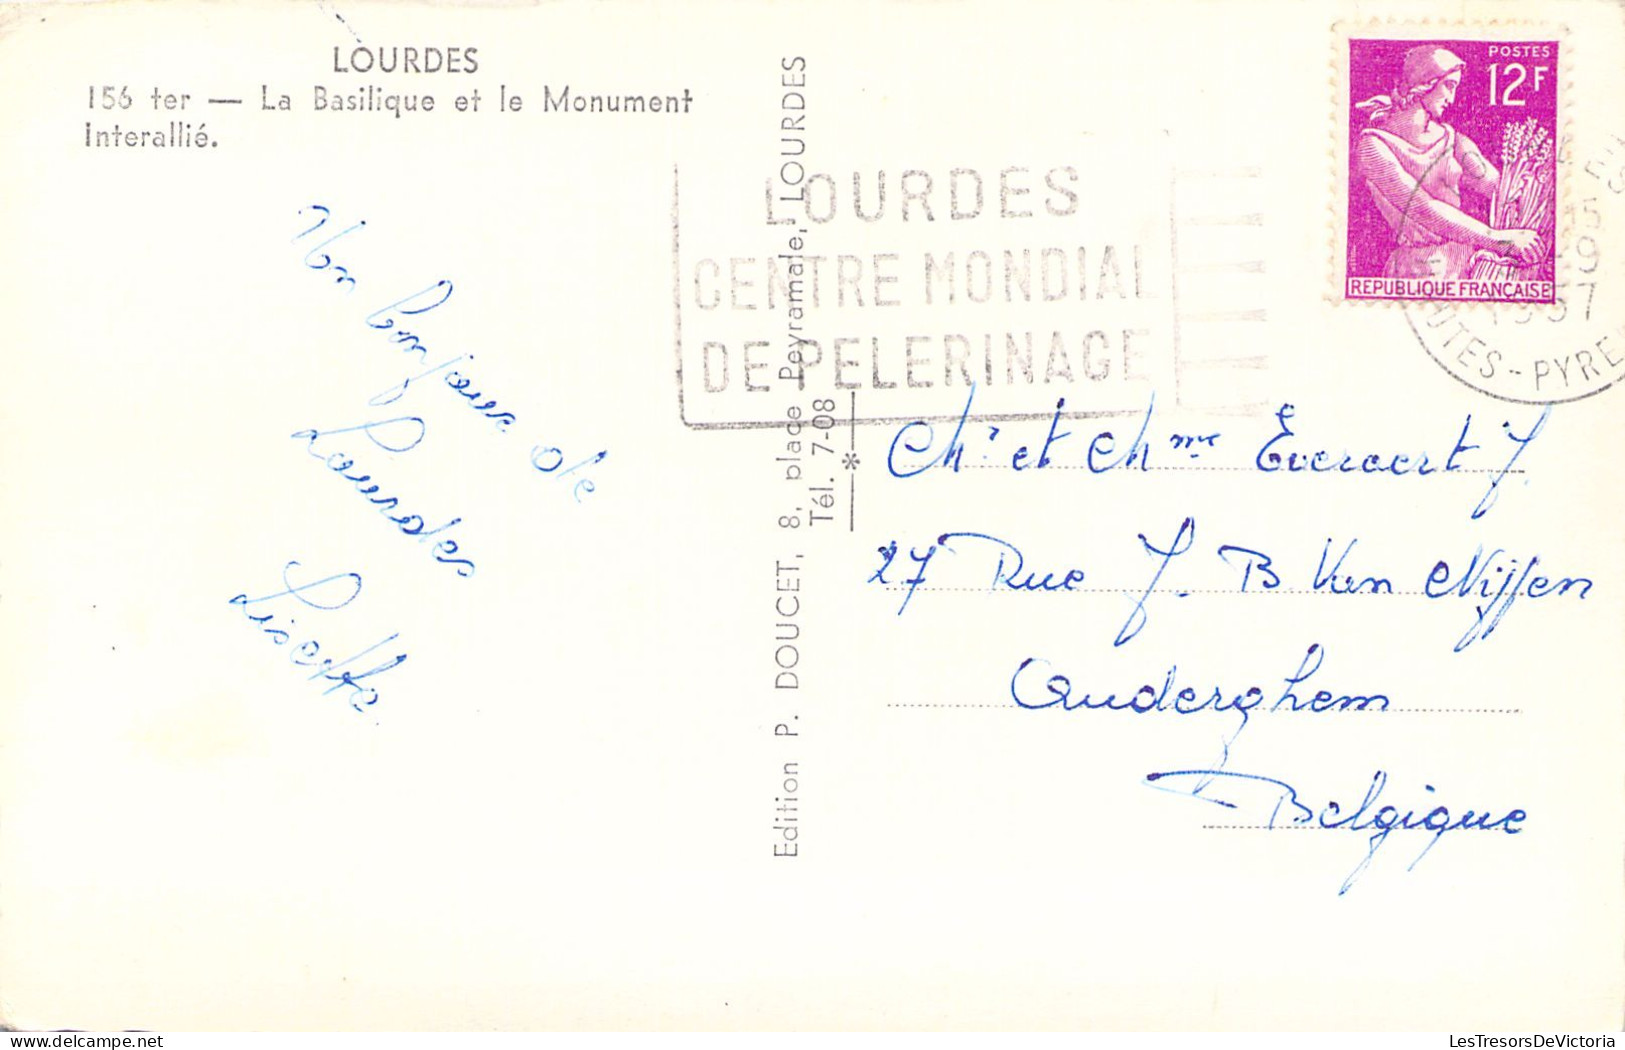 LOURDES
156 ter — La Basilique et le Monument
Interallié.
Un bonjour de
Lourdes
Lisette
Edition P. DOUCET, 8, place Peyramale, LOURDES
Tél. 7-08
LOURDES
CENTRE MONDIAL
DE PELERINAGE
POSTES
12F
REPUBLIQUE FRANÇAISE
1957
UTES-PYRE
Mr et Mme Everaert J.
27 Rue J. B Van Nijffen
Auderghem
Belgique
LesTresorsDeVictoria.com